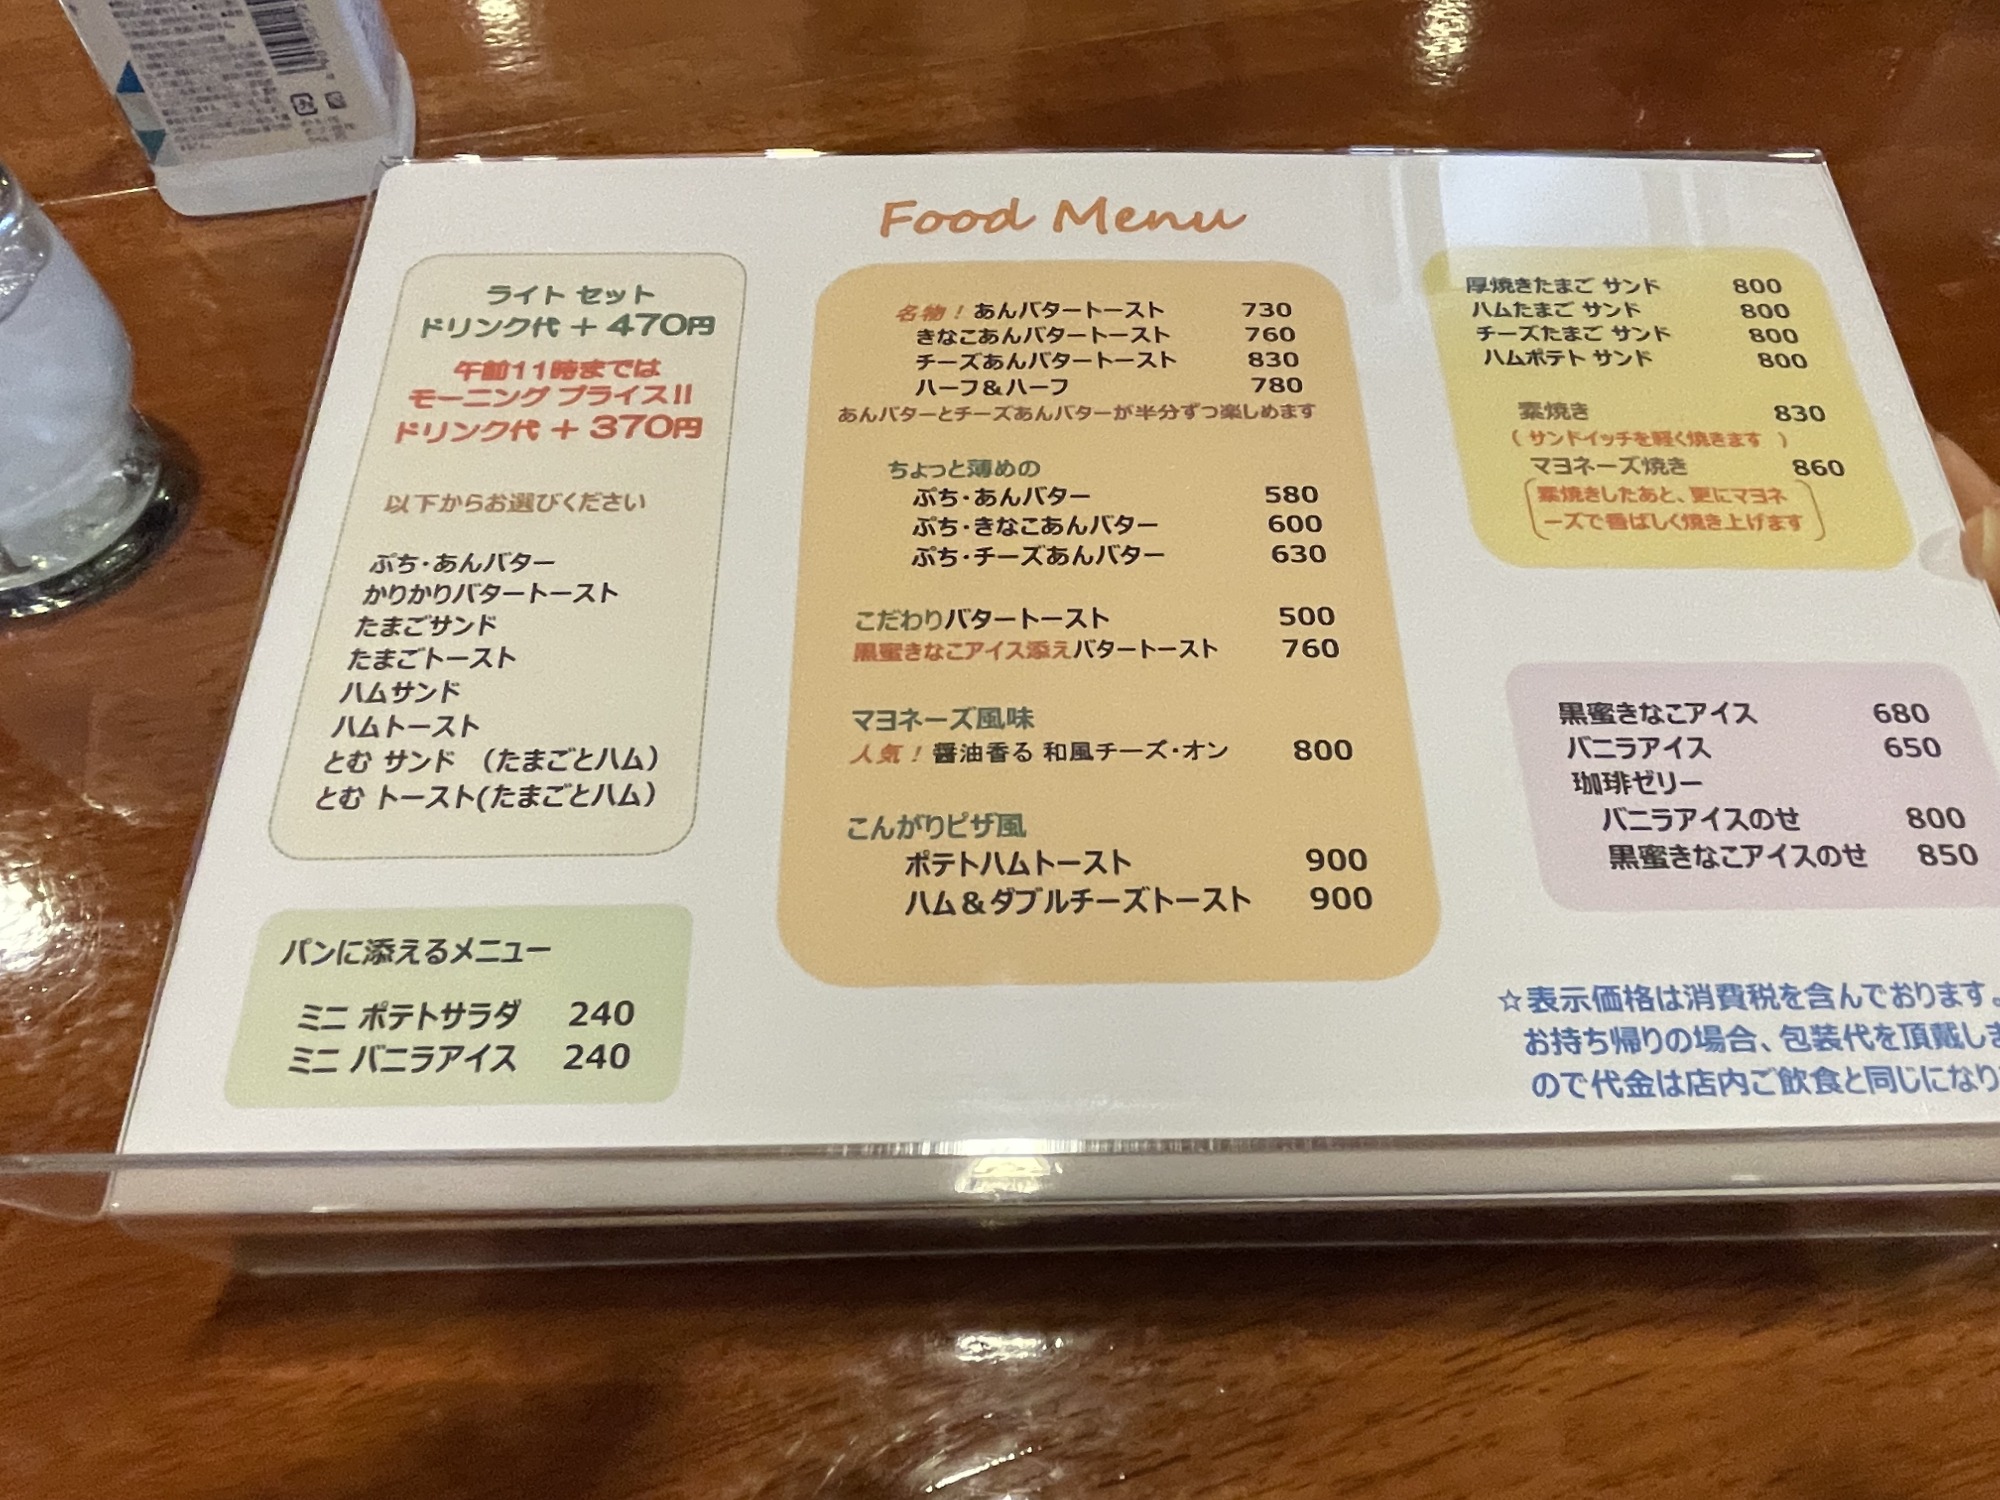 Food Menu
ライト セット
ドリンク代 + 470円
午前11時までは
モーニング プライス!!
ドリンク代 + 370円
以下からお選びください
ぷち・あんバター
かりかりバタートースト
たまごサンド
たまごトースト
ハムサンド
ハムトースト
とむ サンド （たまごとハム）
とむ トースト(たまごとハム）
パンに添えるメニュー
ミニ ポテトサラダ 240
ミニ バニラアイス 240
名物！あんバタートースト 730
きなこあんバタートースト 760
チーズあんバタートースト 830
ハーフ＆ハーフ 780
あんバターとチーズあんバターが半分ずつ楽しめます
ちょっと薄めの
ぷち・あんバター 580
ぷち・きなこあんバター 600
ぷち・チーズあんバター 630
こだわりバタートースト 500
黒蜜きなこアイス添えバタートースト 760
マヨネーズ風味
人気！醤油香る 和風チーズ・オン 800
こんがりピザ風
ポテトハムトースト 900
ハム＆ダブルチーズトースト 900
厚焼きたまご サンド 800
ハムたまご サンド 800
チーズたまご サンド 800
ハムポテト サンド 800
素焼き 830
（ サンドイッチを軽く焼きます ）
マヨネーズ焼き 860
素焼きしたあと、更にマヨネ
ーズで香ばしく焼き上げます
黒蜜きなこアイス 680
バニラアイス 650
珈琲ゼリー
バニラアイスのせ 800
黒蜜きなこアイスのせ 850
☆表示価格は消費税を含んでおります。
お持ち帰りの場合、包装代を頂戴しま
ので代金は店内ご飲食と同じになり